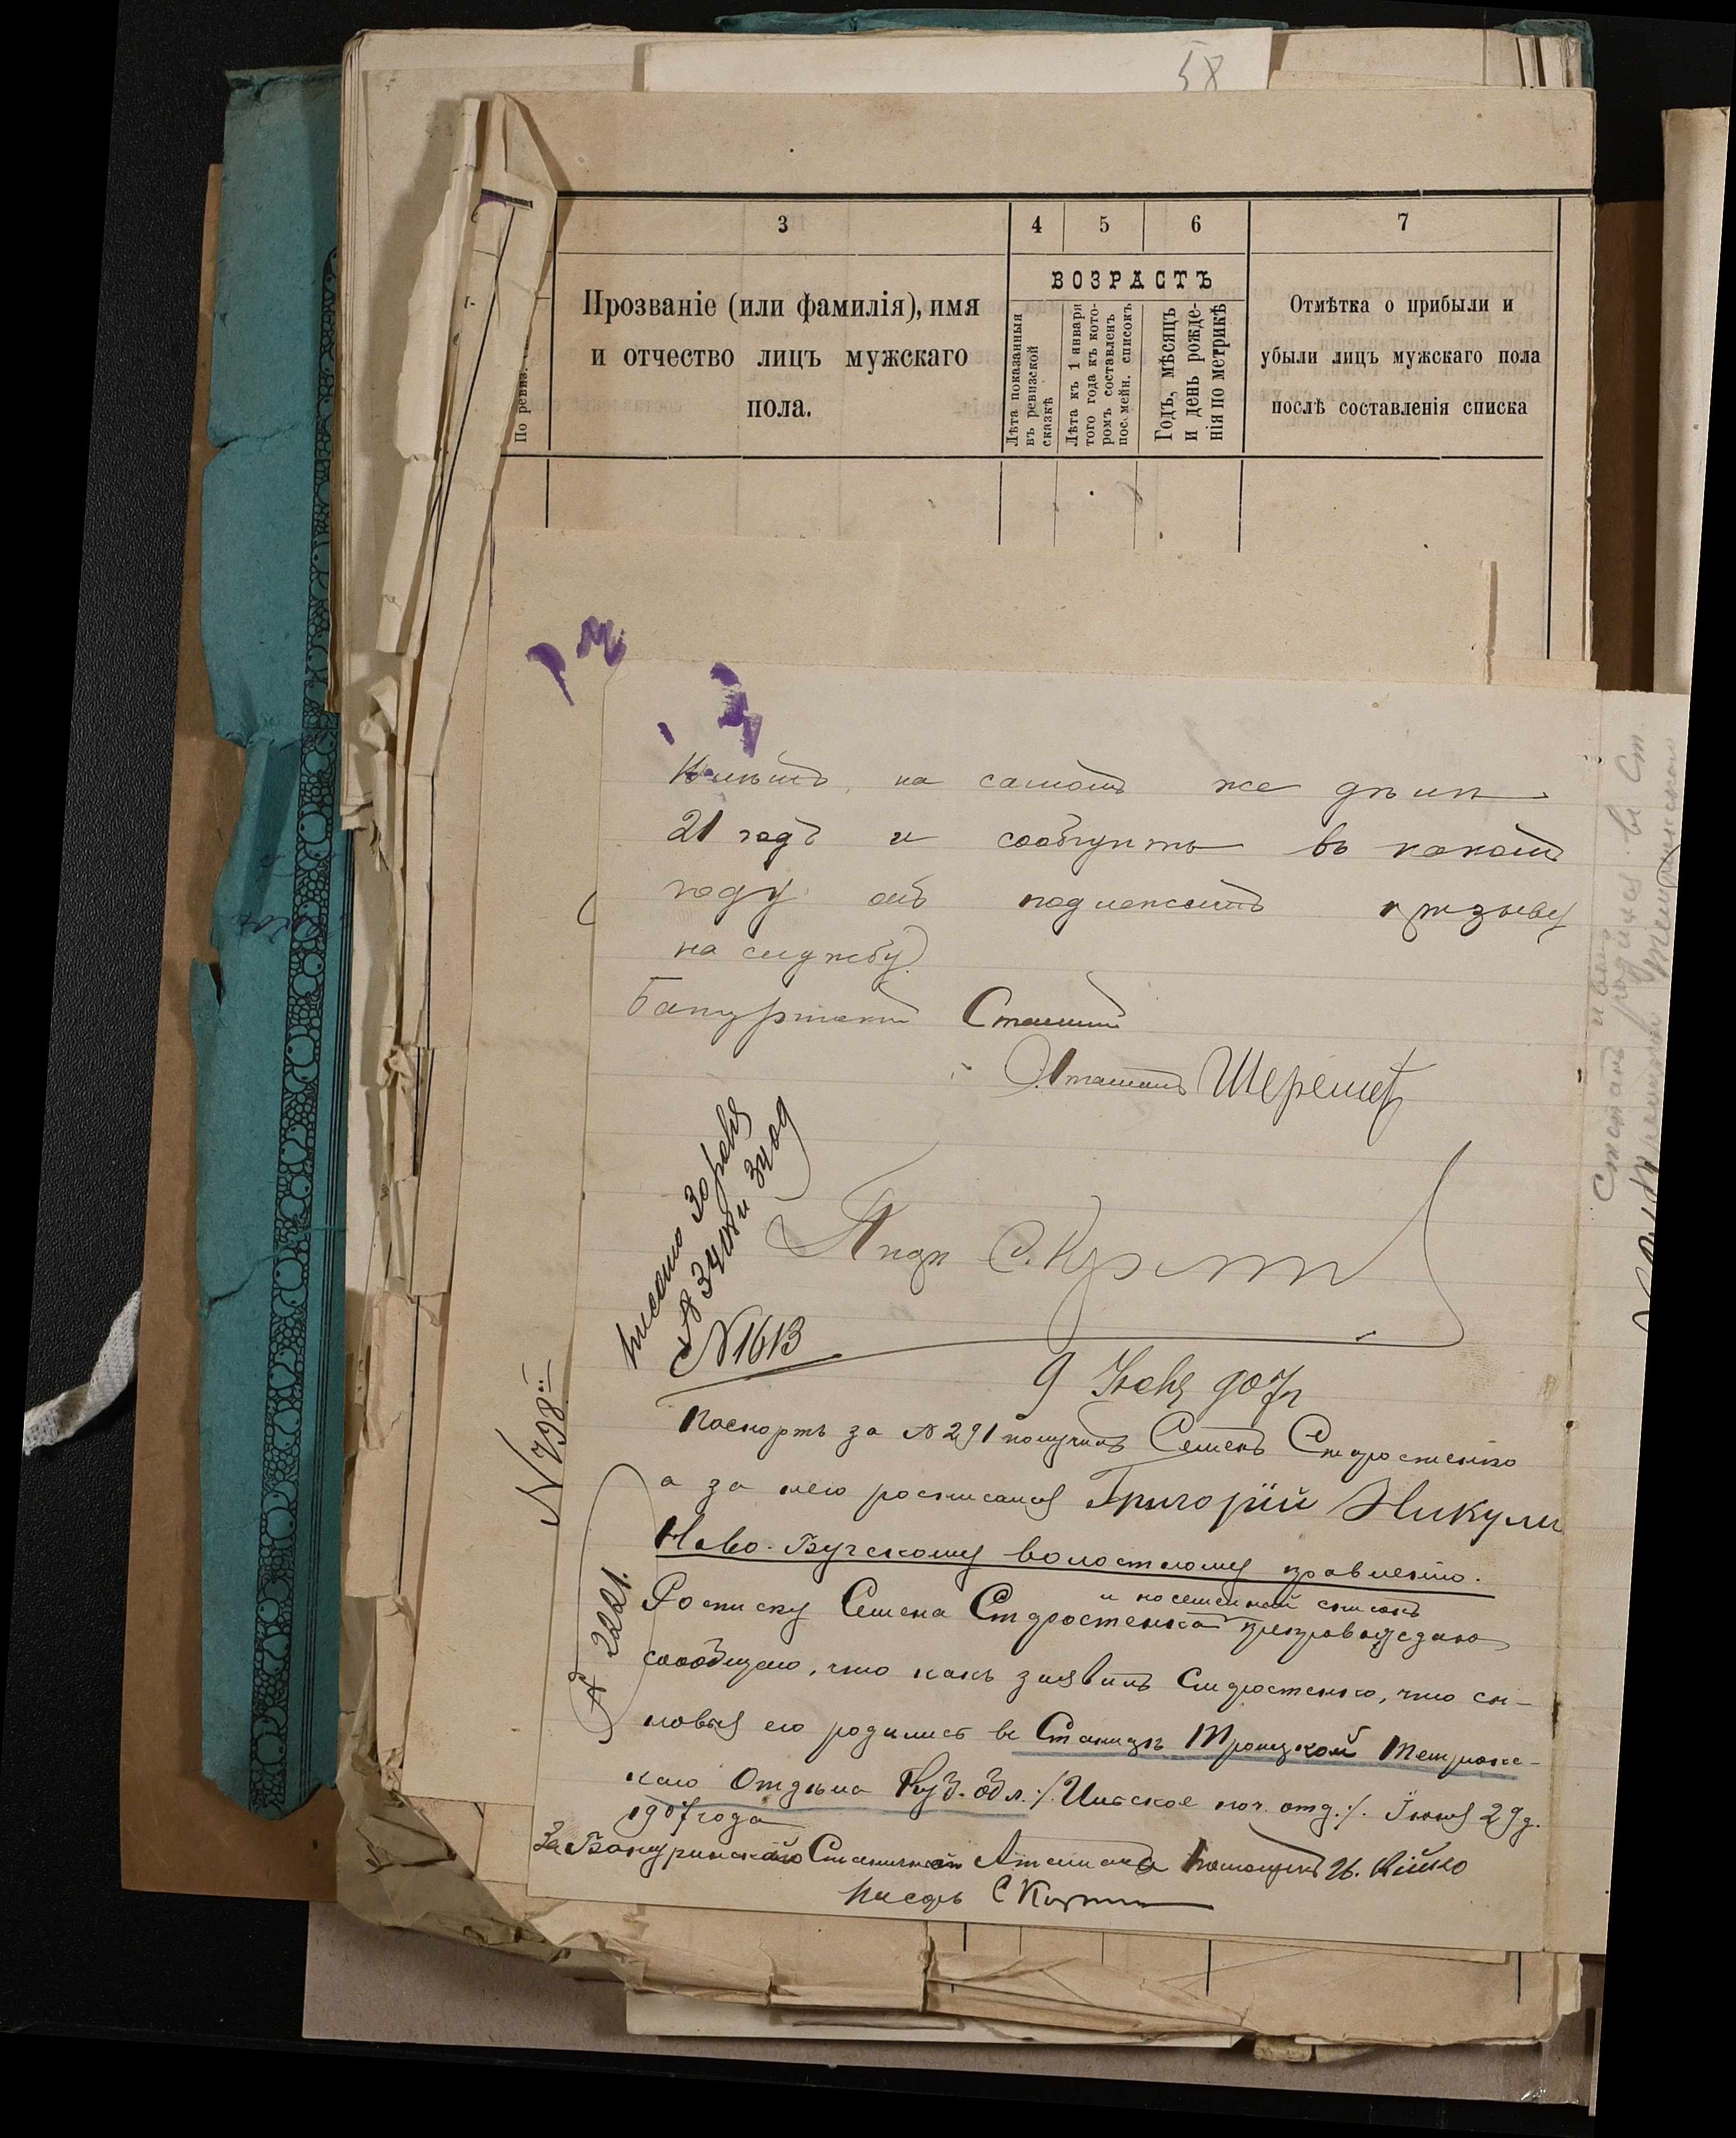 58
3
4
5
6
7
ВОЗРАСТЪ
Прозваніе (или фамилія), имя
и отчество лицъ мужскаго
пола.
По ревиз.
Лѣта показанныя
въ ревизской
сказкѣ
Лѣта къ 1 января
того года къ кото-
ромъ составленъ
пос. мейн. списокъ
Годъ, мѣсяцъ
и день рожде-
нія по метрикѣ
Отмѣтка о прибыли и
убыли лицъ мужскаго пола
послѣ составленія списка
на самомъ же дѣлѣ
21 годъ и сообщить въ какомъ
году онъ подлежитъ призыву
на службу
Станичный
Атаманъ Шеремет
№ 3408 и 3409
№ 1613
9 Іюня 907 г
№ 798
Паспортъ за № 291 получилъ Семенъ Сидростенко
а за него росписался Григорій Никули
Ново-Бугскому волостному правленію.
и посемейный списокъ
Росписку Семена Сидростенка препровождаю
№ 2221.
сообщаю, что какъ заявилъ Сидростенко, что сы-
новья его родились въ Станицѣ Троицкой Темрюкс-
каго Отдѣла Куб. обл. /. Іюня 29 д.
1907 года
За Батуринскаго Станичнаго Атамана Помощникъ
Писарь С
Степанъ
родился въ Ст